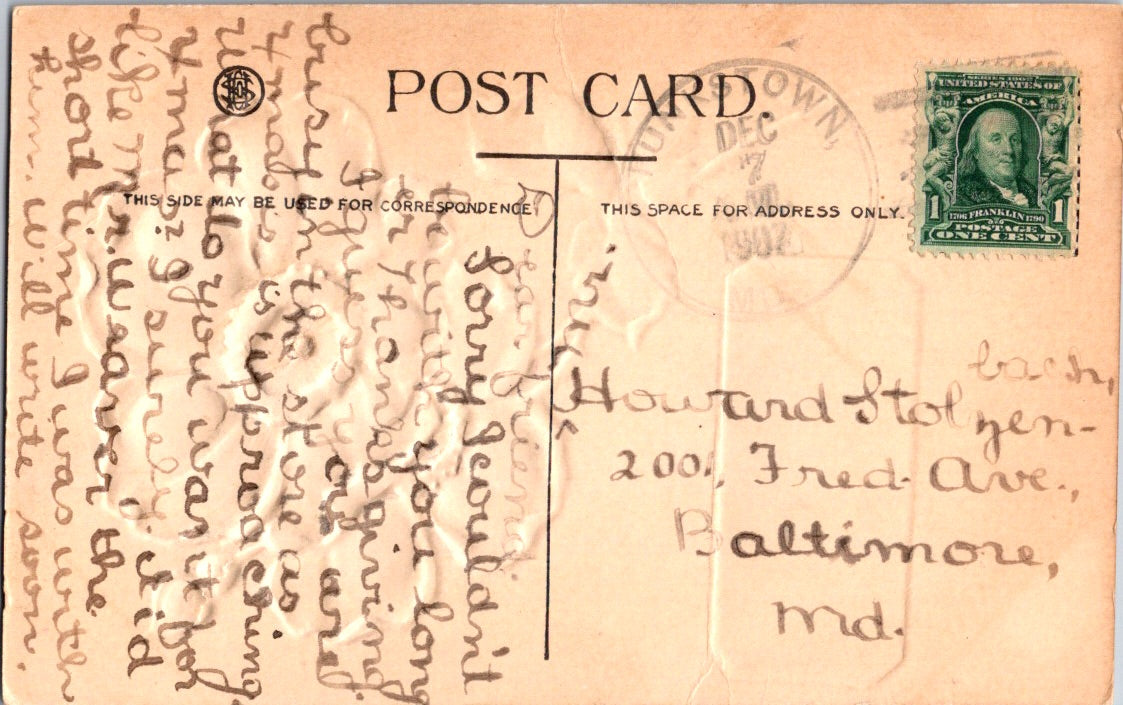 POST CARD.
THIS SIDE MAY BE USED FOR CORRESPONDENCE
THIS SPACE FOR ADDRESS ONLY.
FUNKSTOWN,
DEC
7
1907
MD.
SERIES 1902
UNITED STATES OF
AMERICA
1 1
1706 FRANKLIN 1790
POSTAGE
ONE CENT
Dear friend;
Sorry I couldn't
be with you long
er Thanksgiving.
I guess you are
busy in the store as
Xmas is upproaching
what do you want for
Xmas? I surely did
like Mr. the
short time I was with
him. Will write soon.
Mr.
Howard Stolzen-
bach,
2001 Fred. Ave.,
Baltimore,
Md.